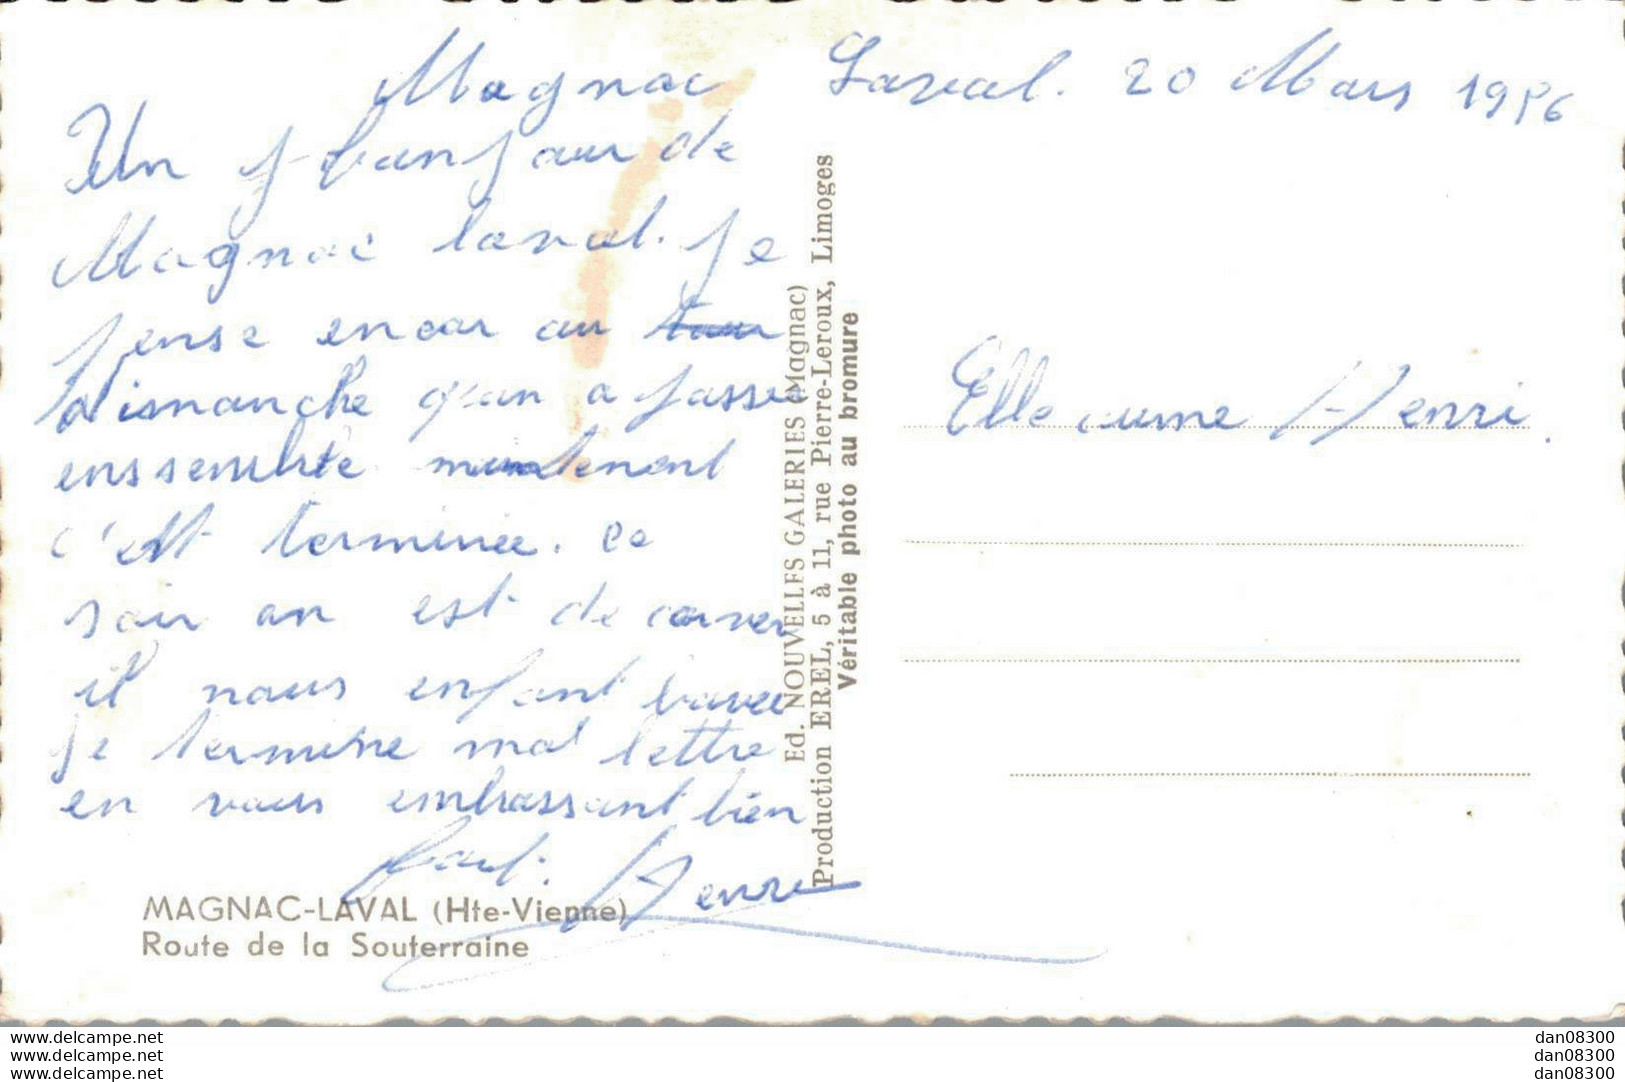 Magnac Laval. 20 Mars 1956
Un bonjour de
Magnac laval. Je
pense encor au
Dimanche qu'on a passer
enssemble maintenant
c'est terminée. Ce
soir on est de
il nous enfant
Je termine mat lettre
en vous embrassant bien
fort. Henri
Elleaume Henri.
MAGNAC-LAVAL (Hte-Vienne)
Route de la Souterraine
Ed. NOUVELLES GALERIES (Magnac)
Production EREL, 5 à 11, rue Pierre-Leroux, Limoges
Véritable photo au bromure
www.delcampe.net
www.delcampe.net
www.delcampe.net
dan08300
dan08300
dan08300